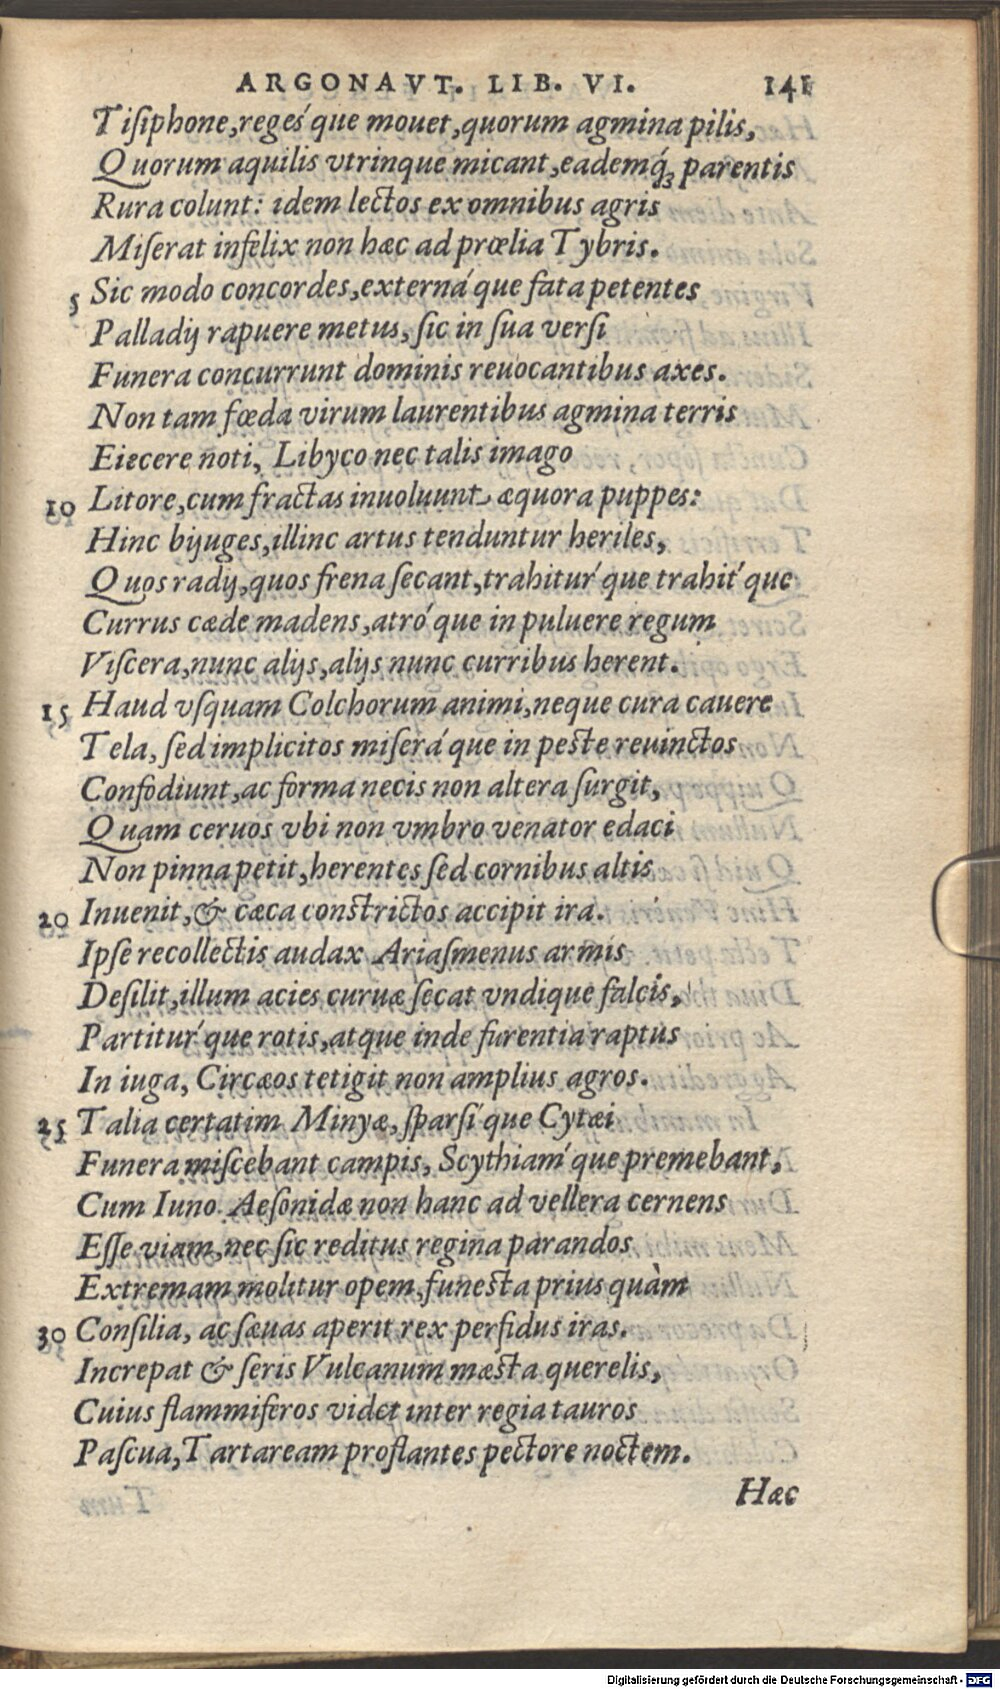 ARGONAVT. LIB. VI. 141
Tiſiphone,regeś que mouet,quorum agmina pilis,
Quorum aquilis vtrinque micant,eademq́ꝫ parentis
Rura colunt: idem lectos ex omnibus agris
Miſerat infelix non hæc ad prœlia Tybris.
5 Sic modo concordes,externá que fata petentes
Palladij rapuere metus, ſic in ſua verſi
Funera concurrunt dominis reuocantibus axes.
Non tam fœda virum laurentibus agmina terris
Eiecere noti, Libyco nec talis imago
10 Litore,cum fractas inuoluunt æquora puppes:
Hinc bijuges,illinc artus tenduntur heriles,
Quos radij,quos frena ſecant,trahitur´que trahit´que
Currus cæde madens,atró que in puluere regum
Viſcera,nunc alijs,alijs nunc curribus herent.
15 Haud vſquam Colchorum animi,neque cura cauere
Tela, ſed implicitos miſerá que in peste reuinctos
Confodiunt,ac forma necis non altera ſurgit,
Quam ceruos vbi non vmbro venator edaci
Non pinna petit,herentes ſed cornibus altis
20 Inuenit,& cæca constrictos accipit ira.
Ipſe recollectis audax Ariaſmenus armis
Deſilit,illum acies curuæ ſecat vndique falcis,
Partitur´que rotis,atque inde furentia raptus
In iuga, Circæos tetigit non amplius agros.
25 Talia certatim Minyæ, ſparſi´que Cytæi
Funera miſcebant campis, Scythiam´que premebant,
Cum Iuno Aeſonidæ non hanc ad vellera cernens
Eſſe viam,nec ſic reditus regina parandos
Extremam molitur opem,funesta prius quàm
30 Conſilia, ac ſæuas aperit rex perfidus iras.
Increpat & ſeris Vulcanum mæsta querelis,
Cuius flammiferos videt inter regia tauros
Paſcua,Tartaream proflantes pectore noctem.
Hæc
Digitalisierung gefördert durch die Deutsche Forschungsgemeinschaft - DFG